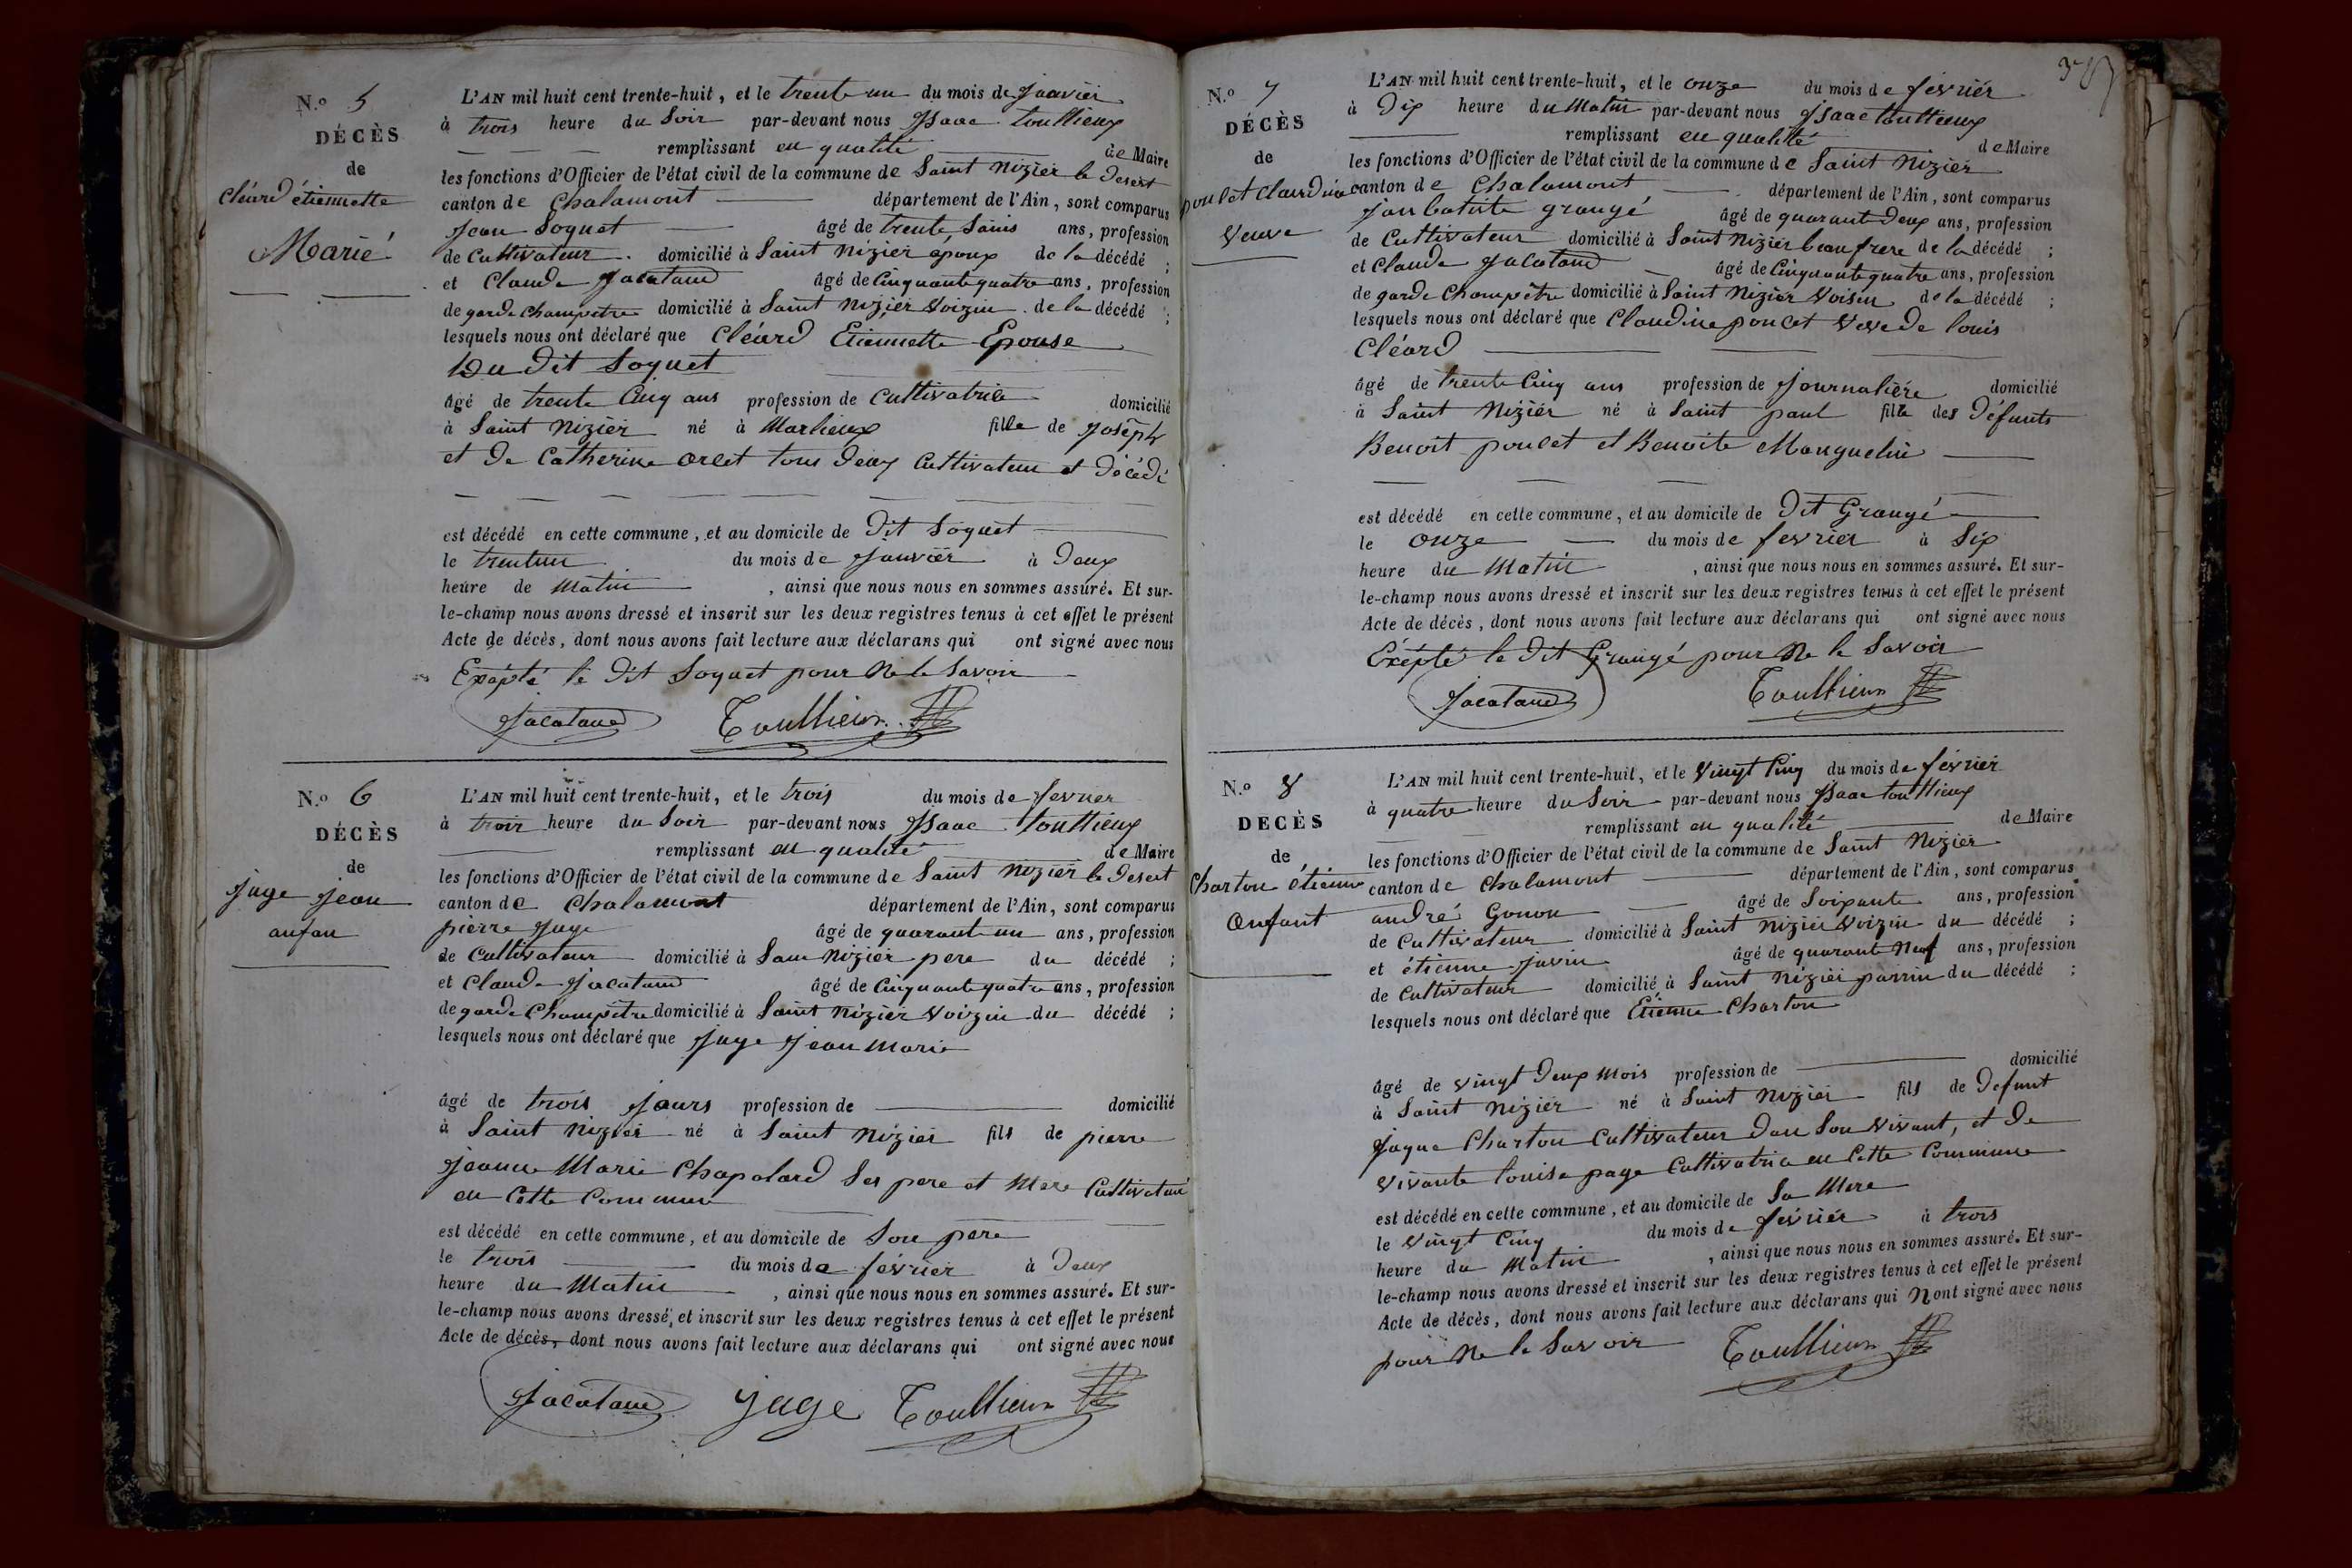 N.o 5
DÉCÈS
de
Cléard étiennette
Marié
L'AN mil huit cent trente-huit, et le trente un du mois de Janvier
à trois heure du Soir par-devant nous Isaac touttieux
remplissant en qualité de Maire
les fonctions d'Officier de l'état civil de la commune de Saint Nizier le Desert
canton de Chalamont département de l'Ain, sont comparus
Jean Soquet âgé de trente ans, profession
de Cultivateur domicilié à Saint Nizier époux de la décédé ;
et Claude Jacataud âgé de Cinquante quatre ans, profession
de garde Champetre domicilié à Saint Nizier Voizin de la décédé ;
lesquels nous ont déclaré que Cléard Etiennette Epouse
Du Dit Soquet
âgé de trente Cinq ans profession de Cultivatrice domicilié
à Saint Nizier né à Marlieux fille de Joseph
et De Catherine orset tous deux Cultivateur et Décédé
est décédé en cette commune, et au domicile de Dit Soquet
le trentun du mois de Janvier à Deux
heure de Matin , ainsi que nous nous en sommes assuré. Et sur-
le-champ nous avons dressé et inscrit sur les deux registres tenus à cet effet le présent
Acte de décès, dont nous avons fait lecture aux déclarans qui ont signé avec nous
Exépté le Dit Soquet pour Ne le Savoir
Jacataud Toullieux
N.o 6
DÉCÈS
de
Juge Jean
anfan
L'AN mil huit cent trente-huit, et le trois du mois de fevrier
à troir heure du Soir par-devant nous Isaac touttieux
remplissant en qualité de Maire
les fonctions d'Officier de l'état civil de la commune de Saint Nizier le Desert
canton de Chalamont département de l'Ain, sont comparus
pierre Juge âgé de quarant un ans, profession
de Cultivateur domicilié à Sain Nizier pere du décédé ;
et Claude Jacataud âgé de Cinquante quatre ans, profession
de garde Champêtre domicilié à Saint Nizier Voizin du décédé ;
lesquels nous ont déclaré que Juge Jean Marie
âgé de trois Jours profession de domicilié
à Saint Nizier né à Saint Nizier fils de pierre
Jeanne Marie Chapolard Ses pere et Mere Cultivateur
en Cette Commune
est décédé en cette commune, et au domicile de Son pere
le trois du mois de février à Deux
heure du Matin , ainsi que nous nous en sommes assuré. Et sur-
le-champ nous avons dressé et inscrit sur les deux registres tenus à cet effet le présent
Acte de décès, dont nous avons fait lecture aux déclarans qui ont signé avec nous
Jacataud juge Toullieux
N.o 7
DÉCÈS
de
poncet Claudine
Veuve
L'AN mil huit cent trente-huit, et le onze du mois de février
à Dix heure du Matin par-devant nous Isaac touttieux
remplissant en qualité de Maire
les fonctions d'Officier de l'état civil de la commune de Saint Nizier
canton de Chalamont département de l'Ain, sont comparus
Jan batiste grangé âgé de quarante Deux ans, profession
de Cultivateur domicilié à Saint Nizier beau frere de la décédé ;
et Claude Jacataud âgé de Cinquante quatre ans, profession
de garde Champêtre domicilié à Saint Nizier Voisin de la décédé ;
lesquels nous ont déclaré que Claudine poncet Veve de louis
Cléard
âgé de trente Cinq ans profession de Journalière domicilié
à Saint Nizier né à Saint paul fille des Défunts
Benoit poncet et Benoite Manguelin
est décédé en cette commune, et au domicile de Dit Grangé
le onze du mois de fevrier à Six
heure du Matin , ainsi que nous nous en sommes assuré. Et sur-
le-champ nous avons dressé et inscrit sur les deux registres tenus à cet effet le présent
Acte de décès, dont nous avons fait lecture aux déclarans qui ont signé avec nous
Exépté le Dit Grangé pour Ne le Savoir
Jacataud Toullieux
N.o 8
DÉCÈS
de
Charton étienne
Enfant
L'AN mil huit cent trente-huit, et le Vingt Cinq du mois de février
à quatre heure du Soir par-devant nous Isaac touttieux
remplissant en qualité de Maire
les fonctions d'Officier de l'état civil de la commune de Saint Nizier
canton de Chalamont département de l'Ain, sont comparus
andré Gonon âgé de Soixante ans, profession
de Cultivateur domicilié à Saint Nizier Voizin du décédé ;
et étienne Javin âgé de quarante Neuf ans, profession
de Cultivateur domicilié à Saint Nizier parrin du décédé ;
lesquels nous ont déclaré que Etienne Charton
âgé de Vingt Deux Mois profession de domicilié
à Saint Nizier né à Saint Nizier fils de Defunt
Jaque Charton Cultivateur Dan Son Vivant, et De
Vivante louise page Cultivatrice en Cette Commune
est décédé en cette commune, et au domicile de Sa Mere
le Vingt Cinq du mois de février à trois
heure du Matin , ainsi que nous nous en sommes assuré. Et sur-
le-champ nous avons dressé et inscrit sur les deux registres tenus à cet effet le présent
Acte de décès, dont nous avons fait lecture aux déclarans qui Nont signé avec nous
pour Ne le Savoir Toullieux